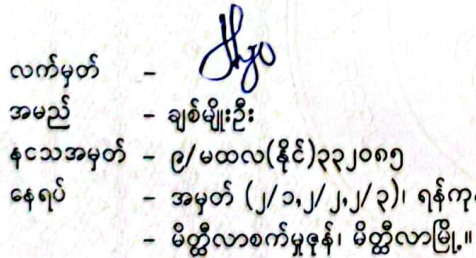 လက်မှတ် -
အမည် - ချစ်မျိုးဦး
နငသအမှတ် - ၉/မထလ(နိုင်)၃၃၂၀၈၅
နေရပ် - အမှတ် (၂/၁,၂/၂,၂/၃)၊
- မိတ္ထီလာစက်မှုဇုန်၊ မိတ္ထီလာမြို့။